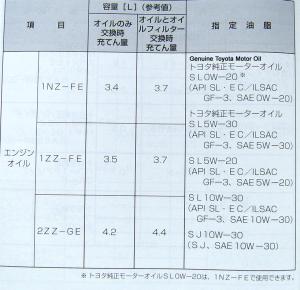 容量 [L] (参考値)
項 目
オイルのみ
交換時
充てん量
オイルとオイ
ルフィルター
交換時
充てん量
指 定 油 脂
エンジン
オイル
1NZ-FE
3.4
3.7
Genuine Toyota Motor Oil
トヨタ純正モーターオイル
SL0W-20 ※
(API SL・EC/ILSAC
GF-3、SAE 0W-20)
トヨタ純正モーターオイル
SL5W-30
(API SL・EC/ILSAC
GF-3、SAE 5W-30)
1ZZ-FE
3.5
3.7
SL5W-20
(API SL・EC/ILSAC
GF-3、SAE 5W-20)
SL10W-30
(API SL・EC/ILSAC
GF-3、SAE 10W-30)
2ZZ-GE
4.2
4.4
SJ10W-30
(SJ、SAE 10W-30)
※トヨタ純正モーターオイルSL0W-20は、1NZ-FEで使用できます。